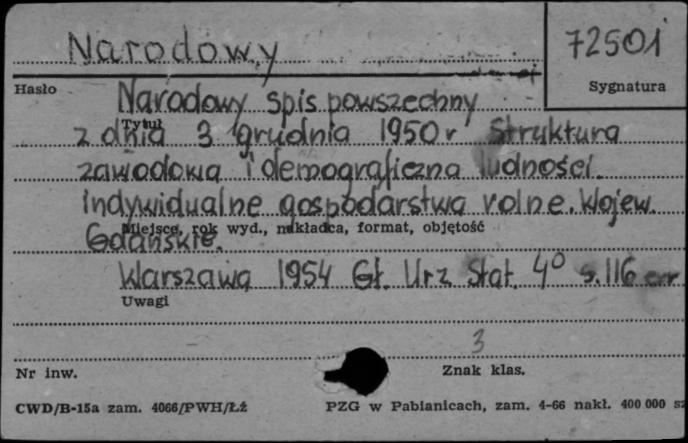 Narodowy
72501
Hasło
Sygnatura
Narodowy spis powszechny
Tytuł
z dnia 3 grudnia 1950 r Struktura
zawodowa i demograficzna ludności.
Indywidualne gospodarstwa rolne. Wojew.
Miejsce, rok wyd., nakładca, format, objętość
Gdańskie.
Warszawa 1954 Gł. Urz Stat. 4° s. 116
Uwagi
3
Nr inw.
Znak klas.
CWD/B-15a zam. 4066/PWH/Łź
PZG w Pabianicach, zam. 4-66 nakł. 400 000 sz